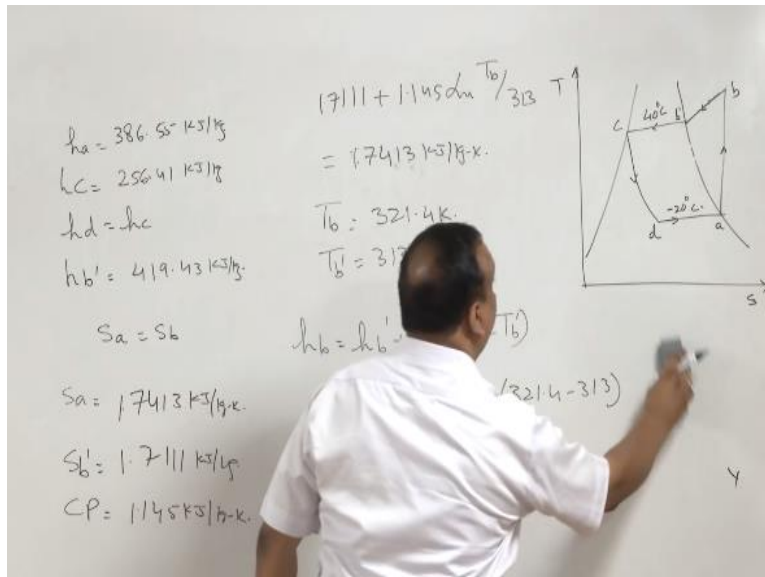 ha = 386.55 KJ/kg
hc = 256.41 KJ/kg
hd = hc
hb' = 419.43 KJ/kg.
Sa = Sb
Sa = 1.7413 KJ/kg-K.
Sb' = 1.7111 KJ/kg
CP = 1.145 KJ/kg-K.
1.7111 + 1.145 ln Tb/313
= 1.7413 KJ/kg-K.
Tb = 321.4 K.
Tb' = 313
hb = hb' - Tb')
(321.4 - 313)
T
b
40°C
b'
c
-20°C.
d
a
s
Y